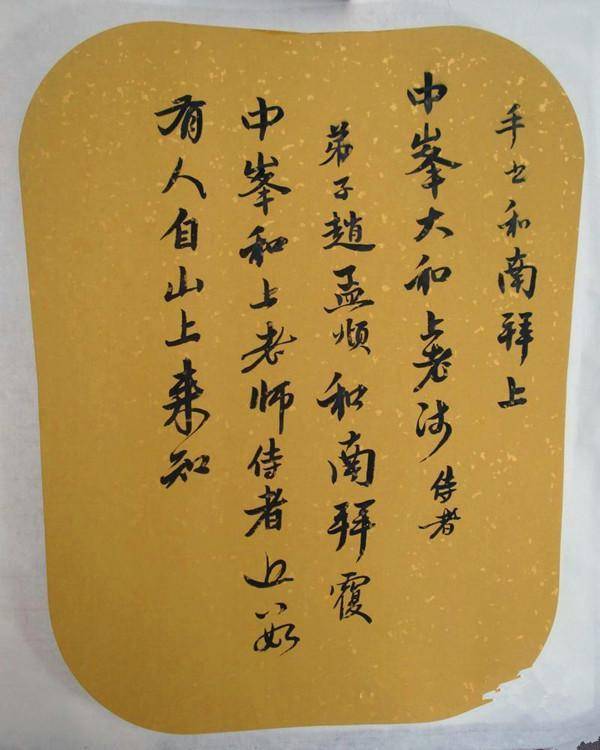 手书和南拜上
中峯大和上老师侍者
弟子趙孟頫和南拜覆
中峯和上老师侍者
有人自山上来知